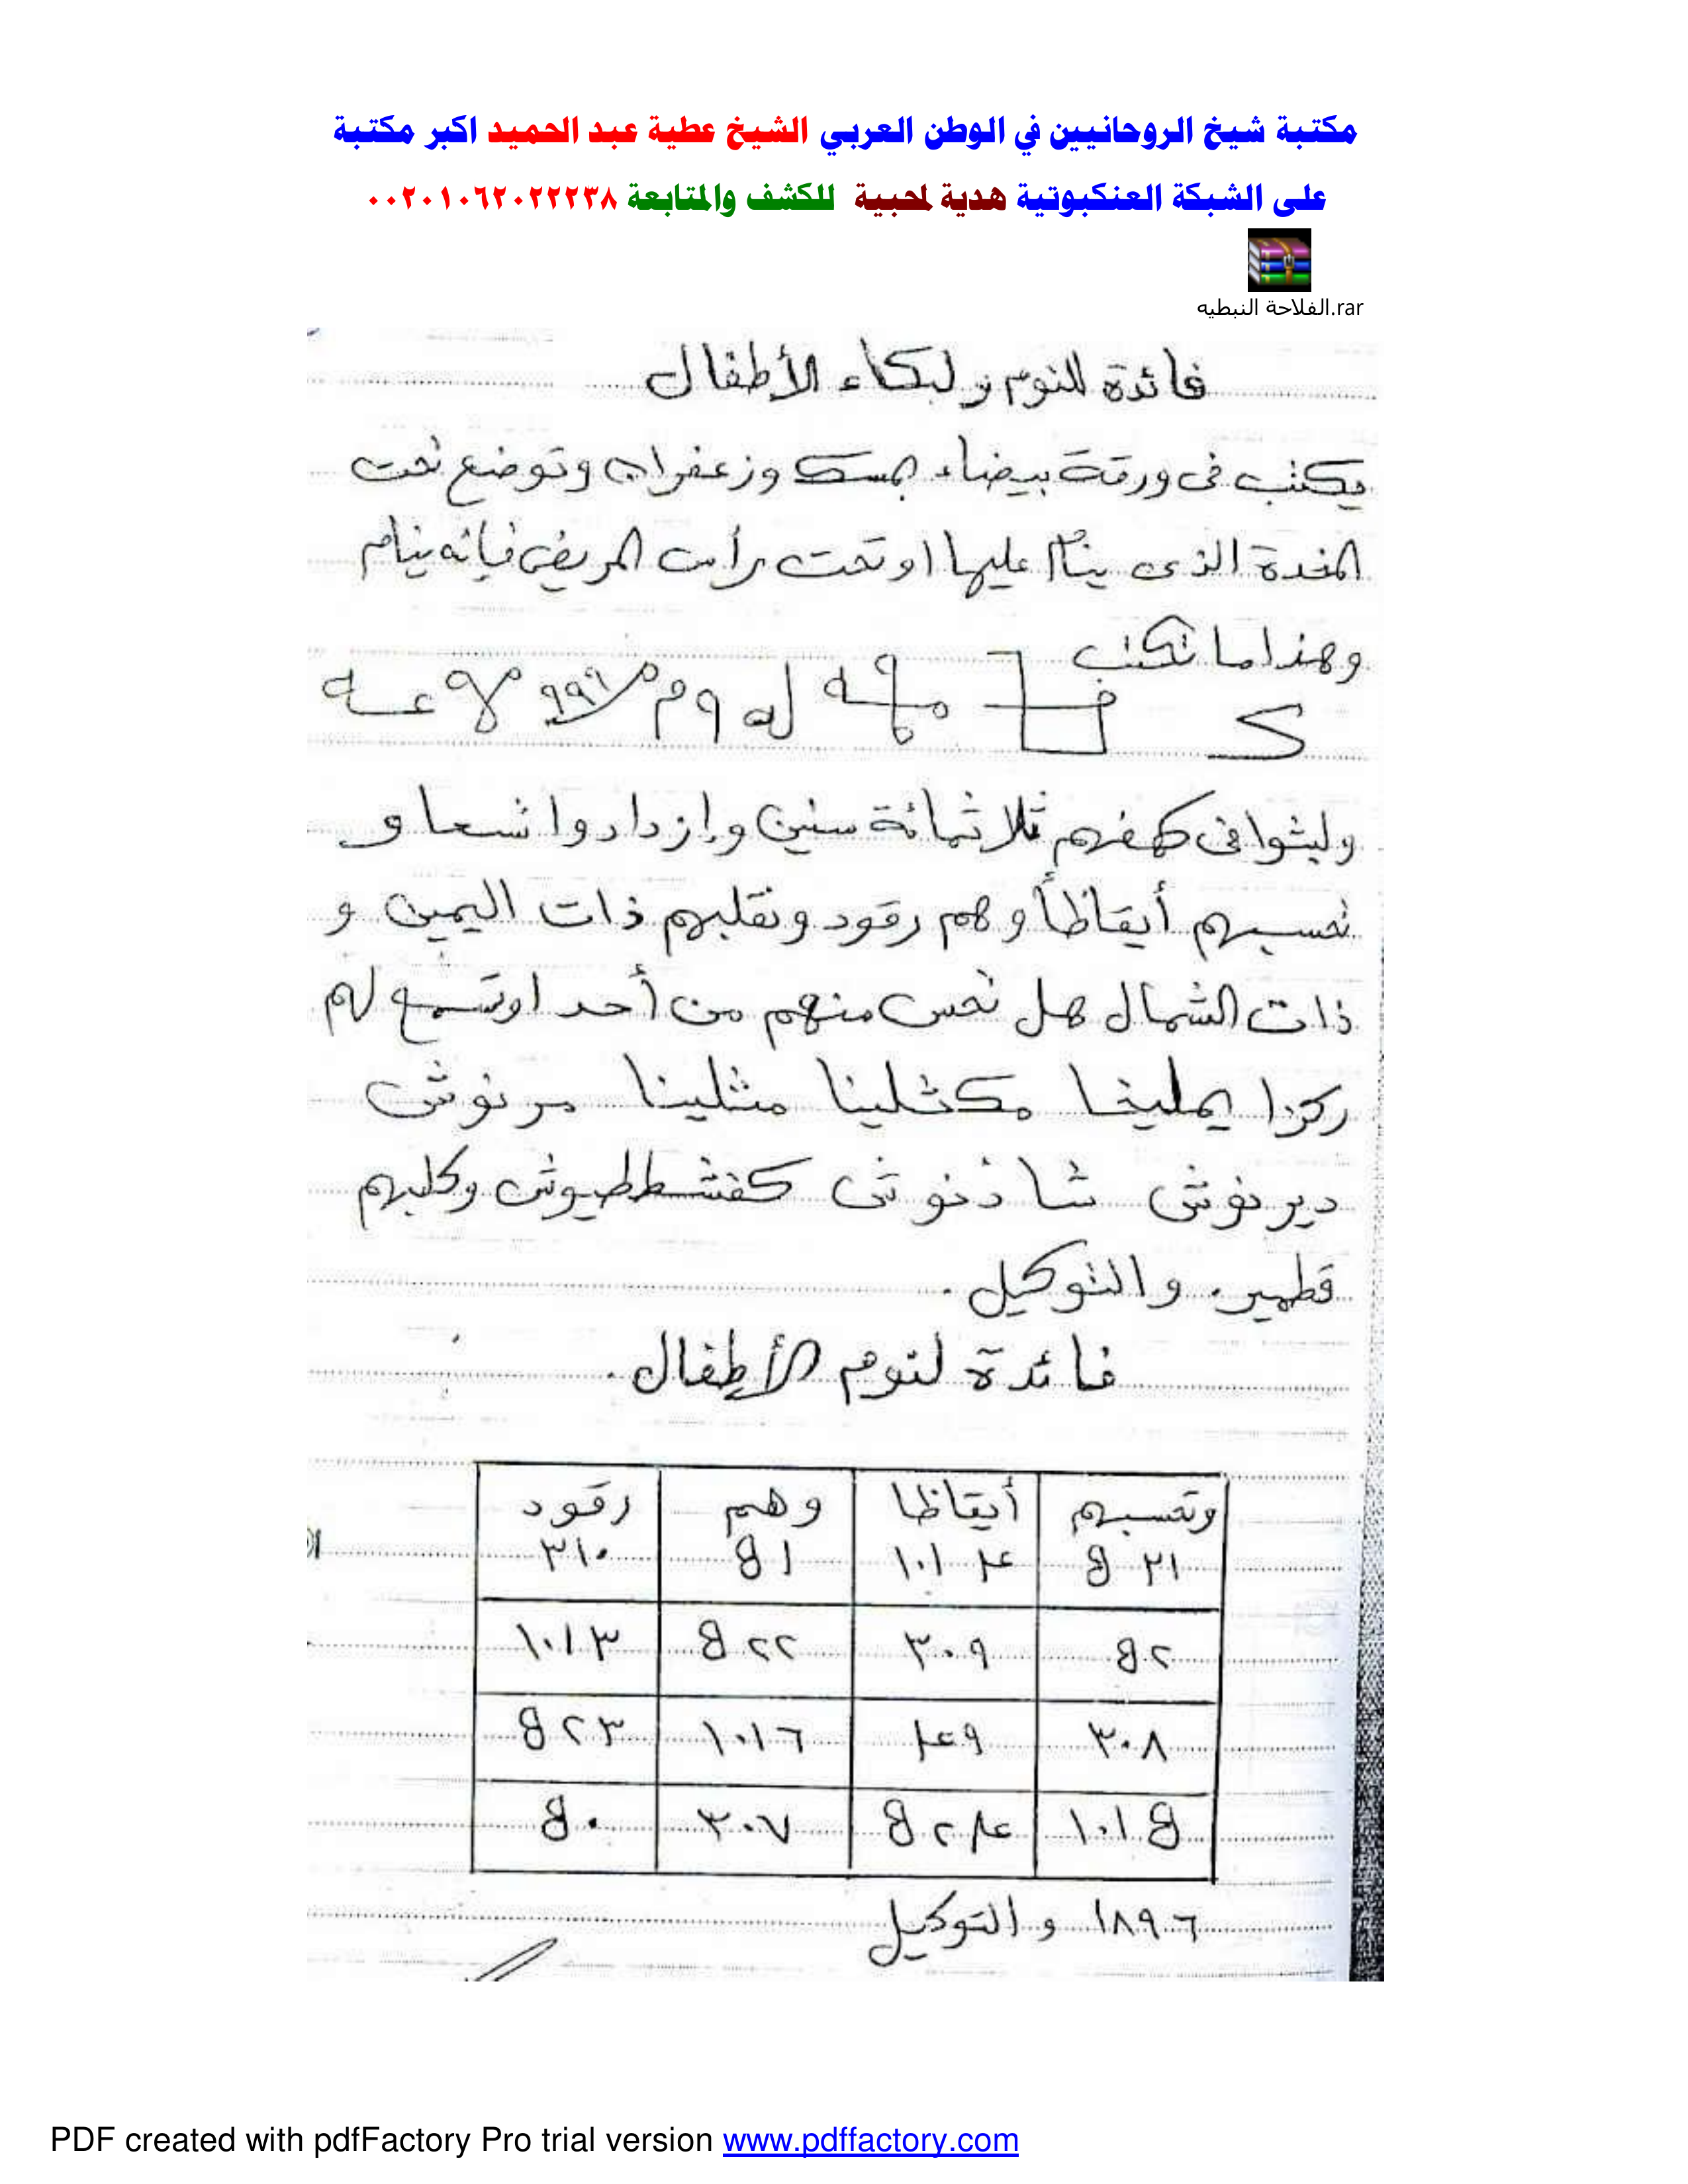 مكتبة شيخ الروحانيين في الوطن العربي الشيخ عطية عبد الحميد اكبر مكتبة
على الشبكة العنكبوتية هدية لمحبية للكشف والمتابعة ٠٠٢٠١٠٦٢٠٢٢٢٣٨
الفلاحة النبطيه.rar
فائدة للنوم ولبكاء الأطفال
يكتب فى ورقة بيضاء بمسك وزعفران وتوضع تحت
المخدة الذى ينام عليها او تحت رأس المريض فإنه ينام
وهذا ما تكتب
ولبثوا فى كهفهم ثلاثمائة سنين وإزدادوا تسعا و
تحسبهم أيقاظاً وهم رقود ونقلبهم ذات اليمين و
ذات الشمال هل تحس منهم من أحد او تسمع لهم
ركزا يمليخا مكثلينا مثلينا مرنوش
ديرنوش شاذنوش كفشططيوش وكلبهم
قطمير. والتوكيل.
فائدة لنوم الأطفال.
وتحسبهم أيقاظا وهم رقود
٥٢١ ١٠١٤ ٥١ ٣١٠
٥٢ ٣٠٩ ٥٢٢ ١٠١٣
٣٠٨ ٤٩ ١٠١٦ ٥٢٣
١٠١٥ ٥٢٤ ٣٠٧ ٥٠
١٨٩٦ والتوكيل
PDF created with pdfFactory Pro trial version www.pdffactory.com